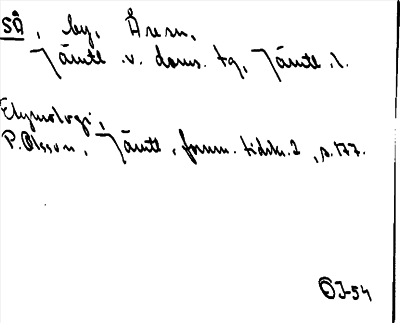 Så, by, Åresn,
Jämtl. v. doms. tg, Jämtl. l.
Etymologi;
P. Olsson, Jämtl. fornm. tidskr. 2, s. 177.
ÖJ-54